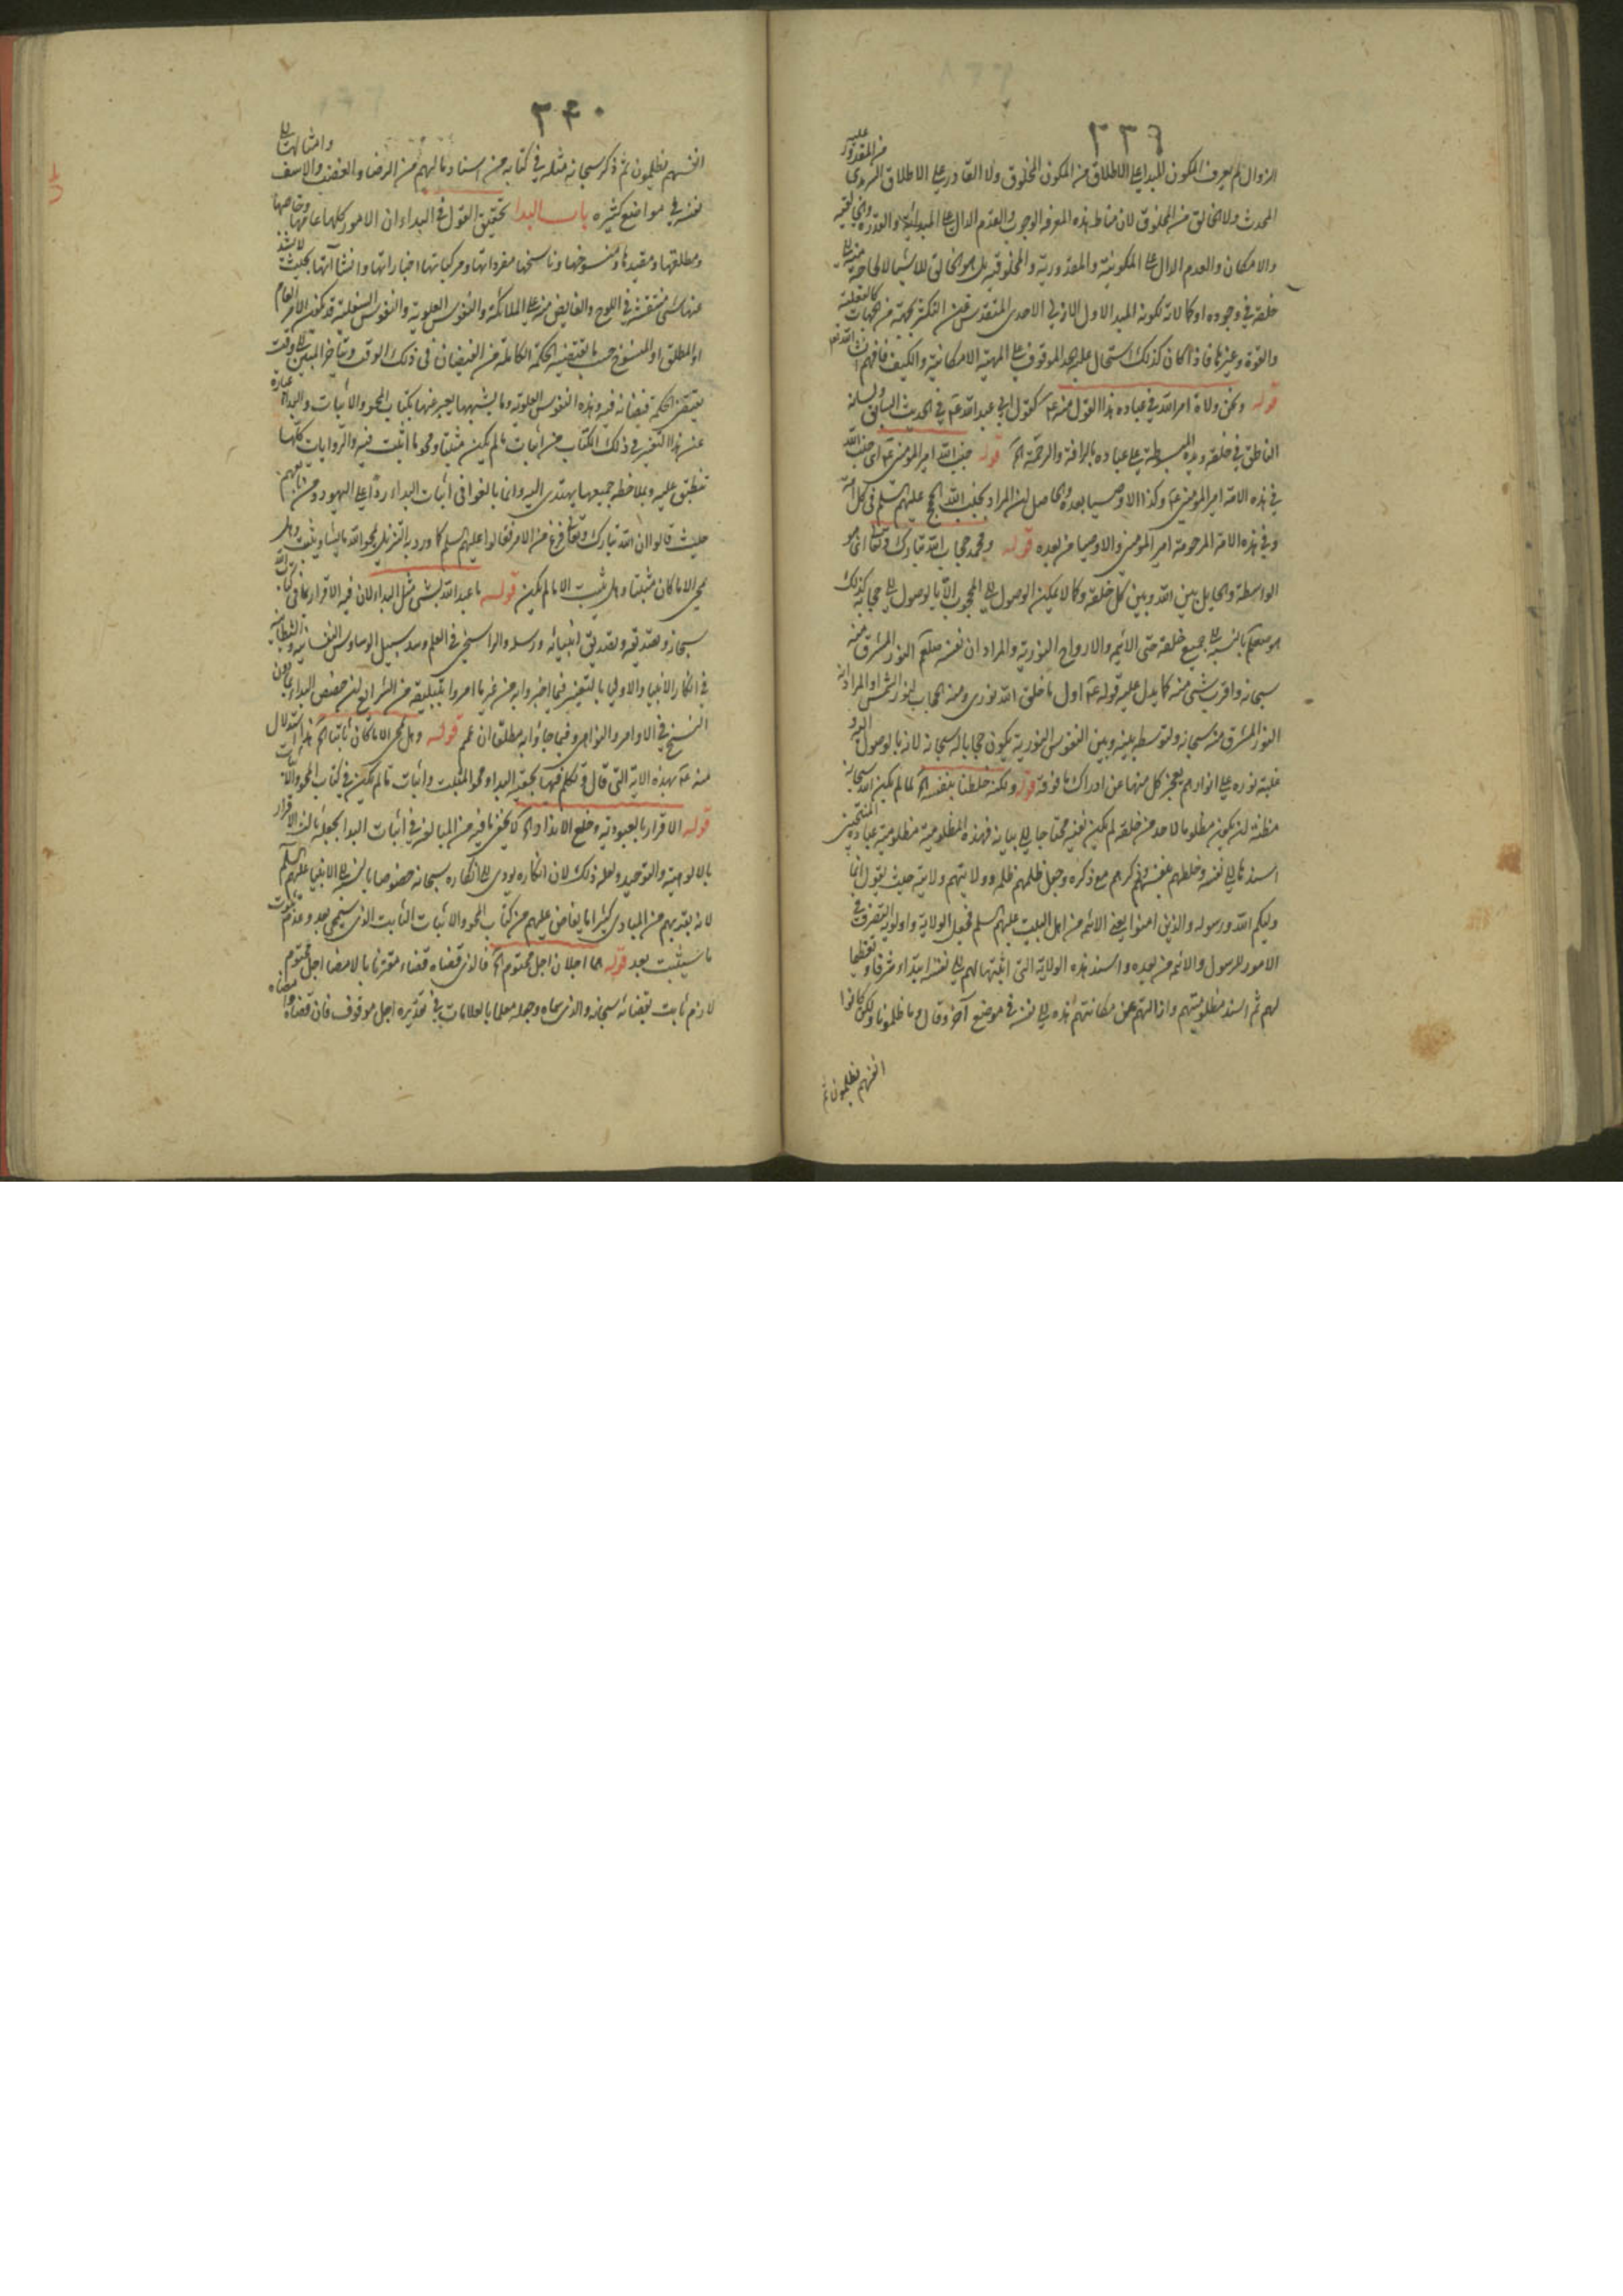 ٣٣٩
الزوال لم يعرف المكون المبدا على الاطلاق من المكون المخلوق ولا القادر على الاطلاق السرمدى من المقدور عليه
المحدث ولا الخالق من المخلوق لان مناط هذه المعرفة الوجوب والقدم الدال على المبدائية والقدرة والخالقية
والامكان والعدم الدال على المكونية والمقدورية والمخلوقية بل هو الخالق للاشياء لا لحاجة منه الى
خلقه في وجوده او كمالاته لكونه المبدا الاول الازلي الاحدى المتقدس عن التكثر بجهة من الجهات كالفعلية
والقوة وغيرها فاذا كان كذلك استحال عليه الحد الموقوف على المهية الامكانية والكيف فافهم ان شاء الله تعالى
قوله ونحن ولاة امر الله في عباده هذا القول منه ع كقول ابي عبد الله ع في الحديث السابق ولسانه
الناطق في خلقه ويده المبسوطة على عباده بالرافة والرحمة الخ قوله جنب الله امير المؤمنين ع اى جنب الله
في هذه الامة امير المؤمنين ع وكذا الاوصيا بعده والحاصل ان المراد بجنب الله الحجج عليهم السلم في كل امة
وفي هذه الامة المرحومة امير المؤمنين والاوصيا من بعده قوله ومحمد حجاب الله تبارك وتعالى اى هو
الواسطة والحايل بين الله وبين كل خلقه وكما لا يمكن الوصول الى المحجوب الا بالوصول الى حجابه كذلك
هو صلعم بالنسبة الى جميع خلقه حتى الائمة والارواح النورية والمراد ان نفسه صلعم النور المشرق منه
سبحانه واقرب شئ منه كما يدل عليه قوله ع اول ما خلق الله نوري ومنه الحجاب لنور الشمس او المراد ان
النور المشرق منه سبحانه ولتوسطه بينه وبين النفوس النورية يكون حجابا له سبحانه لانه بالوصول اليه و
غلبة نوره على انوارهم يعجز كل منها عن ادراك ما فوقه قوله ولكنه خلطنا بنفسه الخ لما لم يكن الله سبحانه
مظنة لان يكون مظلوما لاحد من خلقه لم يكن نفيه محتاجا الى بيانه فهذه المظلومية مظلومية عباده المنتجبين
اسندها الى نفسه وخلطهم بنفسه وذكرهم مع ذكره وجعل ظلمهم ظلمه وولايتهم ولايته حيث يقول انما
وليكم الله ورسوله والذين امنوا يعني الائمة من اهل البيت عليهم السلم فجعل الولاية واولوية التصرف في
الامور للرسول والائمة من بعده واسند هذه الولاية التي اثبتها لهم الى نفسه ابتداء شرفا وتعظيما
لهم ثم اسند مظلوميتهم وازالتهم عن مكانتهم هذه الى نفسه في موضع آخر وقال وما ظلمونا ولكن كانوا
انفسهم يظلمون ثم
٣٤٠
انفسهم يظلمون ثم ذكر سبحانه مثله في كتابه من اسناد ما لهم من الرضا والغضب والاسف وامثالها الى
نفسه في مواضع كثيره باب البدا تحقيق القول في البداء ان الامور كلها عامها وخاصها
ومطلقها ومقيدها ومنسوخها وناسخها مفرداتها ومركباتها اخباراتها وانشاآتها بحيث لا يشذ
عنها شئ منتقشة في اللوح والفايض منه على الملائكة والنفوس العلوية والنفوس السفلية قد يكون الامر العام
او المطلق او المنسوخ حسب ما يقتضيه الحكمة الكاملة من الفيضان في ذلك الوقت ويتاخر المبين الى وقت
يقتضي الحكمة فيضانه فيه وهذه النفوس العلوية وما يشبهها يعبر عنها بكتاب المحو والاثبات والبداء عبارة
عن هذا التغير في ذلك الكتاب من اثبات ما لم يكن مثبتا ومحو ما اثبت فيه والروايات كلها
تنطبق عليه وبملاحظة جميعها يهتدى اليه وانما بالغوا في اثبات البداء ردا على اليهود ومن تابعهم
حيث قالوا ان الله تبارك وتعالى فرغ من الامر فقالوا عليهم السلم كما ورد به التنزيل يمحو الله ما يشاء ويثبت وهل
يمحى الا ما كان مثبتا وهل يثبت الا ما لم يكن قوله ما عبد الله بشئ مثل البداء لان فيه الاقرار بما في كتاب الله
سبحانه وتصديقه وتصديق انبيائه ورسله والراسخين في العلم وسد سبيل الوساوس النفسانية والشيطانية
في انكار الانبياء والاوليا بالتغير فيما اخبروا به من غير ما امروا بتبليغه من الشرايع لان خصص البداء بما دون
النسخ في الاوامر والنواهى وفيما جاؤا به مطلق ان عمم قوله وهل يمحى الا ما كان ثابتا الخ هذا استدلال
منه ع بهذه الاية التي قال وتكلم فيها بحقية البداء ومحو المثبت واثبات ما لم يكن في كتاب المحو والاثبات
قوله الاقرار بالعبودية وخلع الانداد الخ لا يخفى ما فيه من المبالغة في اثبات البدا بجعله ثالث الاقرار
بالالوهية والتوحيد ولعله ذلك لان انكاره يودى الى انكاره سبحانه خصوصا بالنسبة الى الانبيا عليهم السلم
لانه بقربهم من المبادى كثيرا ما يفاض عليهم من كتاب المحو والاثبات الثابت الذى سيمحى بعد وعدم ثبوت
ما سيثبت بعد قوله هما اجلان اجل محتوم الخ فالذى قضاه قضاء مقترنا بالامضا اجل محتوم
لازم ثابت بقضائه سبحانه والذى سماه وجعله معلما بالعلامات في تقديره اجل موقوف فان قضاه وامضاه